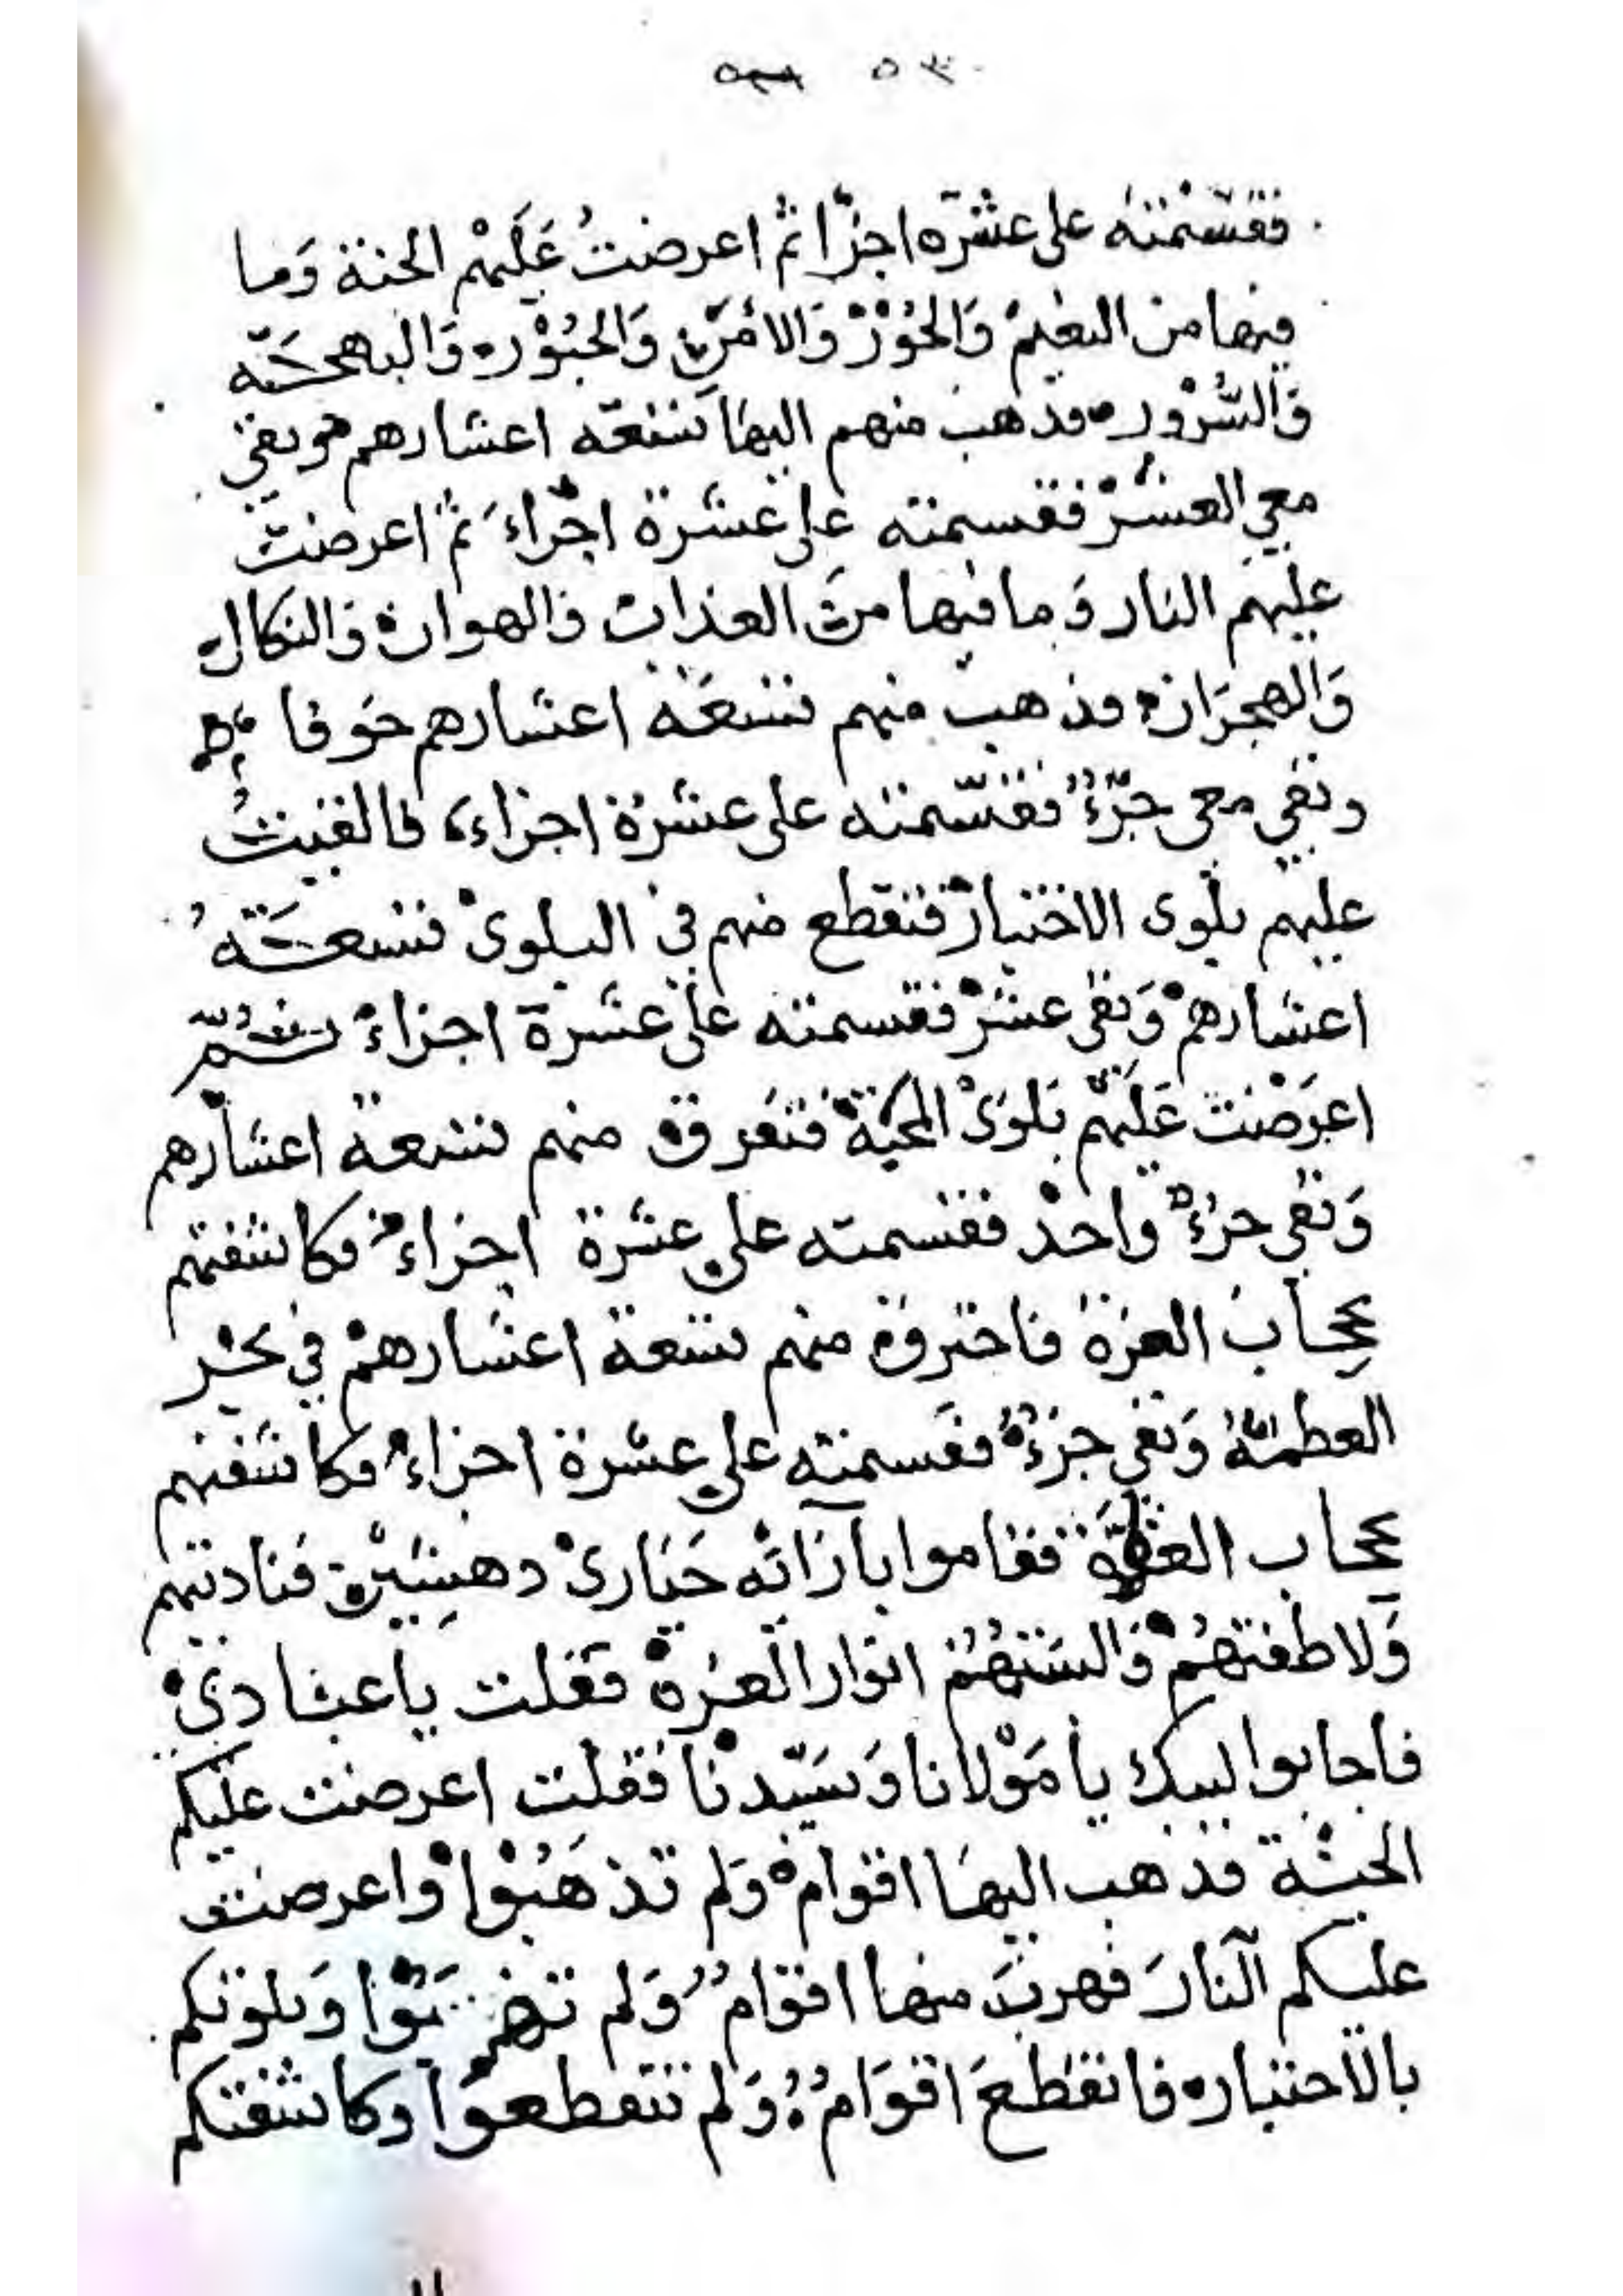 ٥٣
فقسمته على عشره اجزا ثم اعرضتُ عَلَيهْم الجنة وَما
فيها من النعيم وَالحُوْرْ وَالأَمْن وَالحُبُوْر وَالبهجَة
وَالسُّرْور فذهب منهم اليها تسعة اعشارهم وبقي
معي العشْرْ فقسمته على عشرة اجزاءَ ثمَّ اعرضت
عليهم النار وَما فيها من العذاب وَالهوان وَالنكال
وَالهجرَان فذهب منهم تسعَة اعشارهم خوفا
وبقي معي جزءٌ فقسّمته على عشرة اجزاء، فالقيتُ
عليهم بلوى الاختبار فتقطع منهم في البلوىْ تسعَةُ
اعشارهمْ وَبقى عشرْ فقسمته على عشرة اجزاءْ ثُمّ
اعرَضْت عَليَهم بَلوَىْ المحبّة فتَفرق منهم تسعة اعشارهم
وَبقي جزءٌ واحدْ فقسمته على عشرة اجزاء فكاشفتهم
بحجاب العزة فاحترق منهم تسعة اعشارهمْ في بحر
العظمة وَبقي جزءٌ فقَسمته على عشرة اجزاء فكاشفتهم
بحجاب العظمَة فقاموا بآزائه حَيَارىْ دهِشِيْن فناديتهم
وَلاطفتهُمْ وَالبسَتهُمْ انوار العزة فقلت يا عبادي
فأجابوا لبيك يا مَوْلانا وَسَيّدنا فقلت اعرضت عليكم
الجنَّة فذهب اليهَا اقوام وَلم تذهَبُوْا واعرضت
عليكم النارَ فهربَ منها اقوَامٌ وَلم تهربَوْا وَبلوتكم
بالاختبار فانقطعَ اقوَامٌ وَلم تنقطعوَا وكاشفتكم